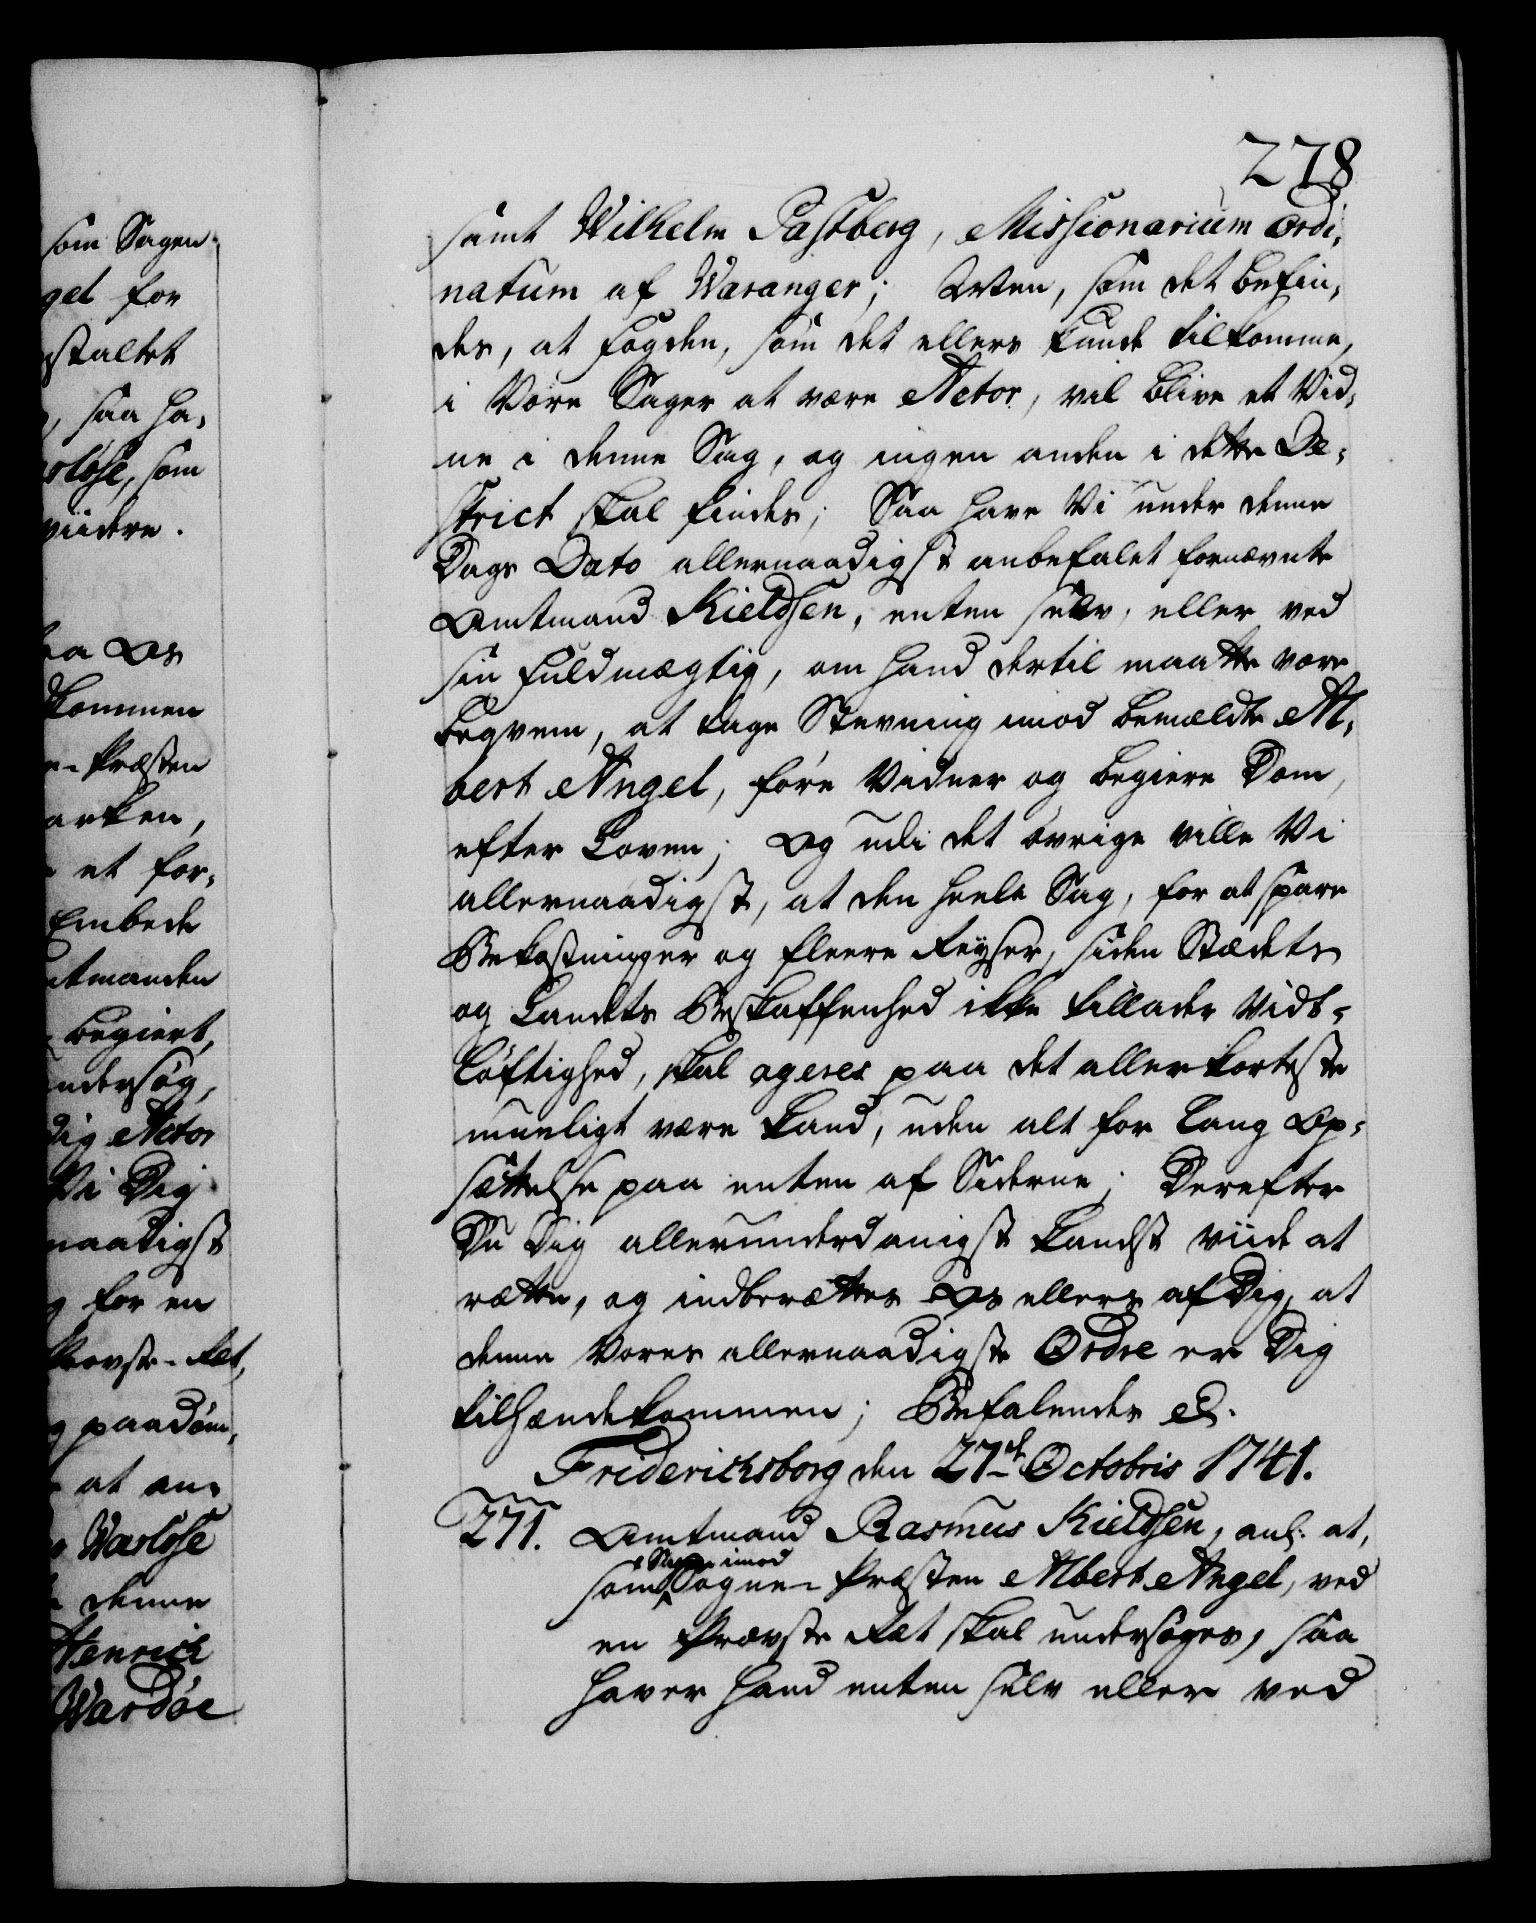 som Sagen
get for
staltet
, saa ha-
rløse, som
viidere.
a Os
kommen
e- Præsten
arken,
et for-
Embede
mtmanden
begiert,
undersøg,
dig Actor
Vi Dig
naadigst
g for en
Provste-Ret,
g paadøm,
at an-
Warløse
denne
Henrich
Wardøe
278
samt Wilhelm Pastberg, Missionarium ordi-
natum af Waranger; Men, som det befin-
des, at Fogden, som det ellers kunde tilkomme,
i Vore Sager at være Actor, vil blive et Vid-
ne i denne Sag, og ingen anden i dette De-
strict skal findes; Saa have Vi under denne
Dags Dato allernaadigst anbefalet fornævnte
Amtmand Kieldsen, enten selv, eller ved
sin Fuldmægtig, om hand dertil maatte være
beqvem, at tage Stevning imod bemældte Al-
bert Angel, føre Vidner og begiere Dom,
efter Loven; Og udi det øvrige ville Vi
allernaadigst, at den heele Sag, for at spare
Bekostninger og fleere Reyser, siden Stædets
og Landets Beskaffenhed ikke tillader Vidt-
løftighed, skal ageres paa det allerkorteste
mueligt være kand, uden alt for lang Op-
sættelse paa enten af Siderne; Derefter
Du Dig allerunderdanigst kandst viide at
rætte, og indberættes Os ellers af Dig, at
denne Vores allernaadigste Ordre er Dig
tilhændekommen; Befalendes &.
Friderichsborg den 27de Octobris 1741.
271. Amtmand Rasmus Kieldsen, anl: at,
Sagen imod
som Sogne-Præsten Albert Angel, ved
en Provste Ret skal undersøges, saa
haver hand enten selv eller ved